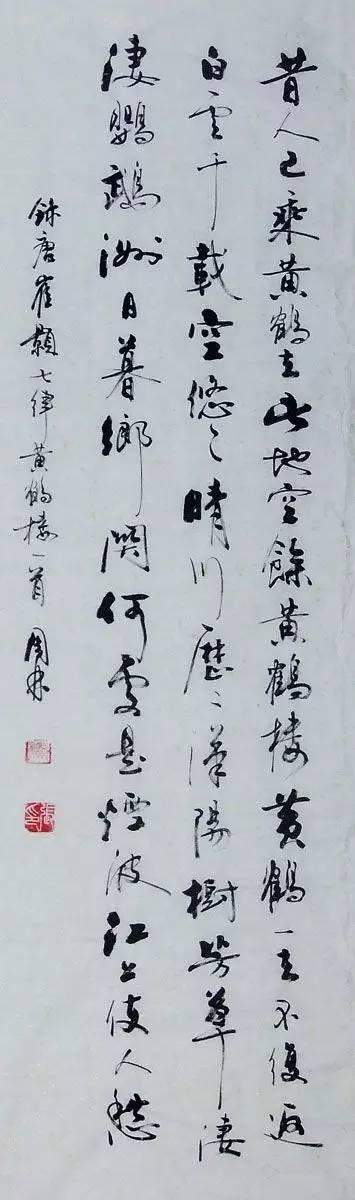 昔人已乘黃鶴去此地空餘黃鶴樓黃鶴一去不復返
白雲千載空悠〻晴川歷〻漢陽樹芳草淒
淒鸚鵡洲日暮鄉關何處是煙波江上使人愁
錄唐崔顥七律黃鶴樓一首